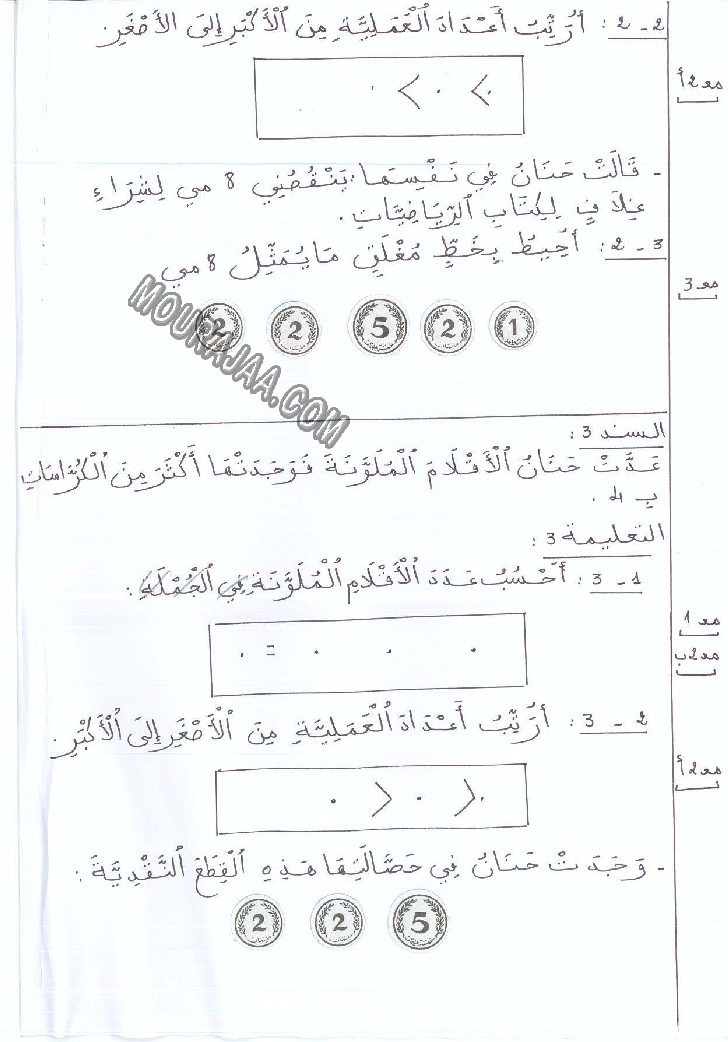 2 - 2 : أُرَتِّبُ أَعْدَادَ الْعَمَلِيَّةِ مِنَ الْأَكْبَرِ إِلَى الأَصْغَرِ.
مع2أ
. > . > .
- قَالَتْ حَنَانُ فِي نَفْسِهَا: يَنْقُصُنِي 8 مي لِشِرَاءِ
غِلَافٍ لِكِتَابِ الرِّيَاضِيَّاتِ.
2 - 3 : أُحِيطُ بِخَطٍّ مُغْلَقٍ مَا يُمَثِّلُ 8 مي
مع3
1 2 5 2 2
MOURAJAA.COM
السند 3 :
عَدَّتْ حَنَانُ الْأَقْلَامَ الْمُلَوَّنَةَ فَوَجَدَتْهَا أَكْثَرَ مِنَ الْكُرَّاسَاتِ
بِـ 4 .
التعليمة 3 :
3 - 1 : أَحْسُبُ عَدَدَ الْأَقْلَامِ الْمُلَوَّنَةِ فِي الْجُمْلَةِ :
مع1
مع2ب
. . . = .
3 - 2 : أُرَتِّبُ أَعْدَادَ الْعَمَلِيَّةِ مِنَ الْأَصْغَرِ إِلَى الْأَكْبَرِ.
مع2أ
. < . < .
- وَجَدَتْ حَنَانُ فِي حَصَّالَتِهَا هَذِهِ الْقِطَعَ النَّقْدِيَّةَ :
5 2 2